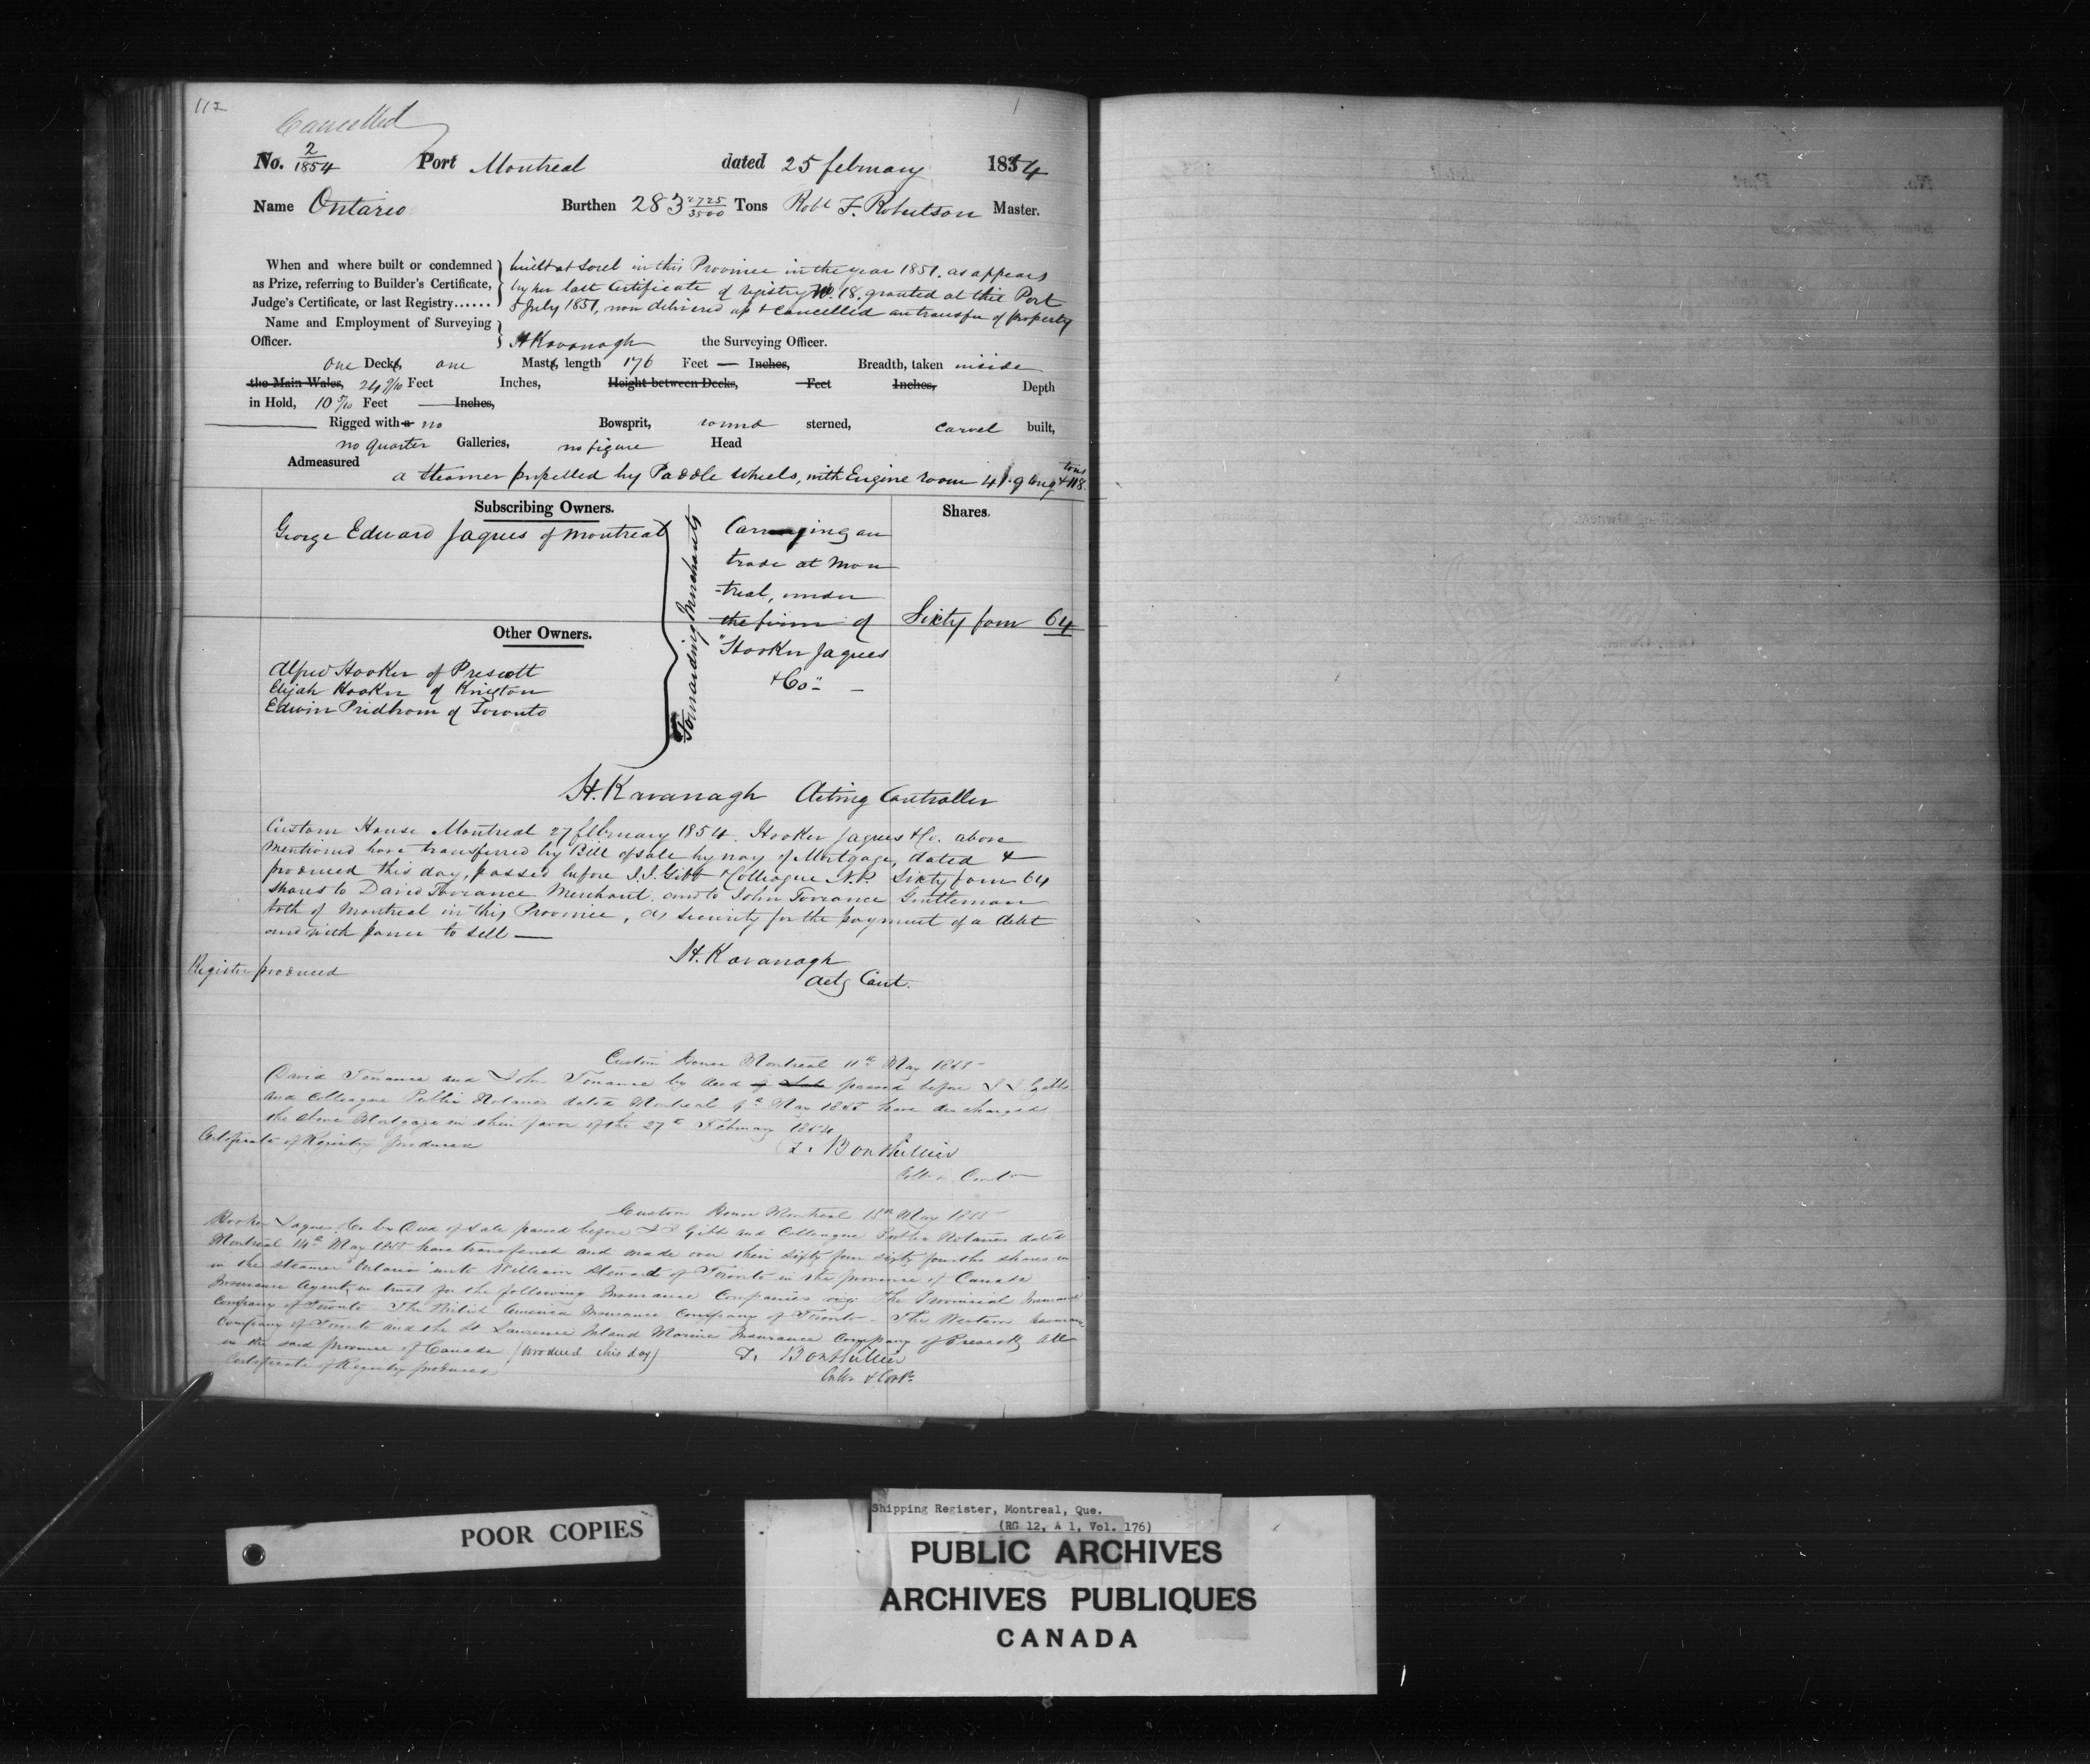 112
Cancelled
No. 2/1854 Port Montreal dated 25 february 1854
Name Ontario Burthen 283 2725/3500 Tons Robt F. Robertson Master.
When and where built or condemned as Prize, referring to Builder's Certificate, Judge's Certificate, or last Registry......
built at Sorel in this Province in the year 1851. as appears
by her last Certificate of registry No. 18. granted at this Port
5 July 1851, now delivered up & cancelled on transfer of property
Name and Employment of Surveying Officer. H Kavanagh the Surveying Officer.
one Decks, one Masts, length 176 Feet — Inches, Breadth, taken inside
the Main Wales, 24 9/10 Feet Inches, Height between Decks, Feet Inches, Depth
in Hold, 10 5/10 Feet — Inches,
Rigged with a no Bowsprit, round sterned, carvel built,
no quarter Galleries, no figure Head
Admeasured
a Steamer propelled by Paddle Wheels, with Engine room 41.9 long & 118. tons
Subscribing Owners. Shares.
George Edward Jaques of Montreal
Other Owners.
Alfred Hooker of Prescott
Elijah Hooker of Kingston
Edwin Pridham of Toronto
Forwarding Merchants
Carrying on
trade at Mon
-treal, under
the firm of
"Hooker Jaques
& Co" —
Sixty four 64
H. Kavanagh Acting Controller
Custom House Montreal 27 february 1854. Hooker Jaques & Co. above
mentioned have transferred by Bill of sale by way of Mortgage, dated &
produced this day, passed before I.J. Gibb & Colleague N.P. Sixty four 64
shares to David Torrance Merchant. and to John Torrance Gentleman
both of Montreal in this Province, as security for the payment of a debt
and with power to sell —
H. Kavanagh
Actg Cont.
Register produced
Custom House Montreal 11th May 1855
David Torrance and John Torrance by deed of Sale passed before I J Gibb
and Colleague Public Notaries dated Montreal 9th May 1855 have discharged
the above Mortgage in their favor of the 27th February 1854
Certificate of Registry produced
T. Bouthillier
Collr & Contr
Custom House Montreal 15th May 1855
Hooker Jaques & Co by Deed of Sale passed before I J Gibb and Colleague Public Notaries dated
Montreal 14th May 1855 have transferred and made over their sixty four sixty fourths shares in
in the steamer "Ontario" unto William Steward of Toronto in the province of Canada
Insurance Agent, in trust for the following Insurance Companies viz: The Provincial Insurance
Company of Toronto The British America Insurance Company of Toronto - The Western Assurance
Company of Toronto and the St Lawrence Inland Marine Insurance Company of Prescott, all
in the said province of Canada (produced this day)
Certificate of Registry produced
T. Bouthillier
Collr & Contr
POOR COPIES
Shipping Register, Montreal, Que.
(RG 12, A 1, Vol. 176)
PUBLIC ARCHIVES
ARCHIVES PUBLIQUES
CANADA